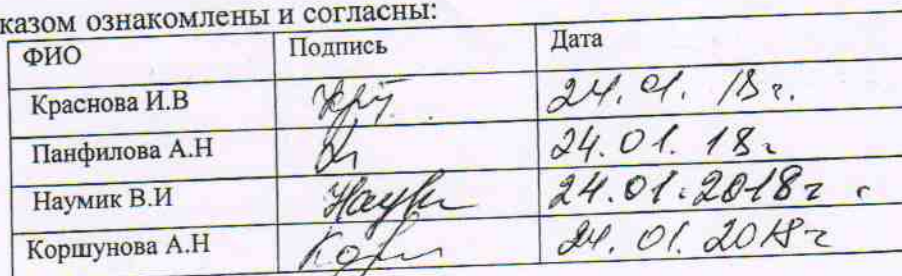 казом ознакомлены и согласны:
ФИО Подпись Дата
Краснова И.В 24.01.18г.
Панфилова А.Н 24.01.18г
Наумик В.И 24.01.2018г.
Коршунова А.Н 24.01.2018г